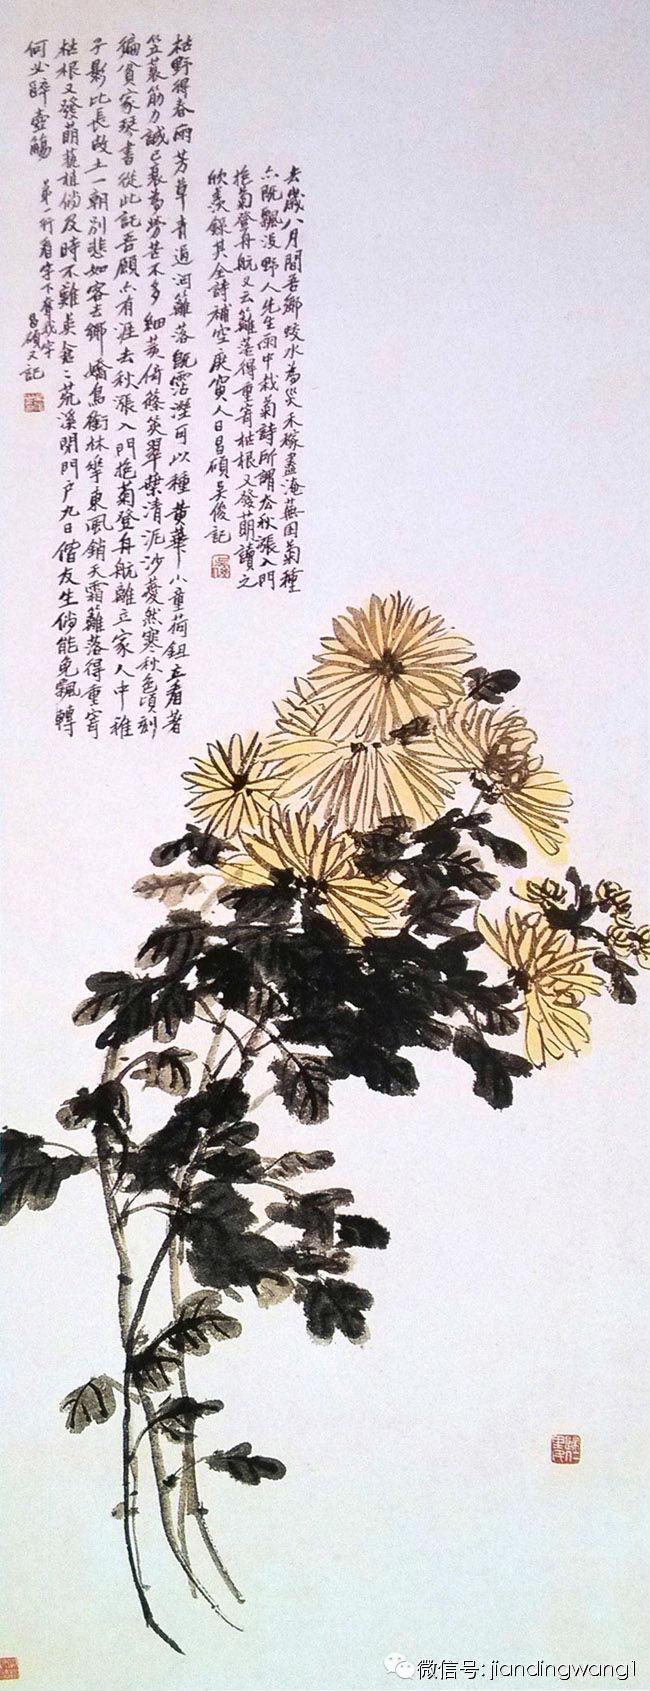 去歲八月間吾鄉蛟水為災禾稼盡淹蕪田菊種
亦既飄沒野人先生雨中栽菊詩所謂去秋漲入門
抱菊登舟航又云籬落得重甯枯根又發萌讀之
欣羨錄其全詩補空庚寅人日昌碩吳俊記
枯野得春雨芳草青過河籬落既霑溼可以種黃華小童荷鉏立看著
笠蓑筋力誠已衰為勞苦不多細莢倚篠翠葉清泥沙然寒秋色頃刻
徧貧家琴書從此託吾願亦有涯去秋漲入門抱菊登舟航離立家人中稚
子影比長故土一朝別悲如客去鄉嬌鳥銜林華東風銷天霜籬落得重甯
枯根又發萌蓺植倘及時不難荒溪閉門戶九日偕友生倘能免飄轉
何必醉壺觴
第一行看字下奪我字
昌碩又記
微信号: jiandingwang1